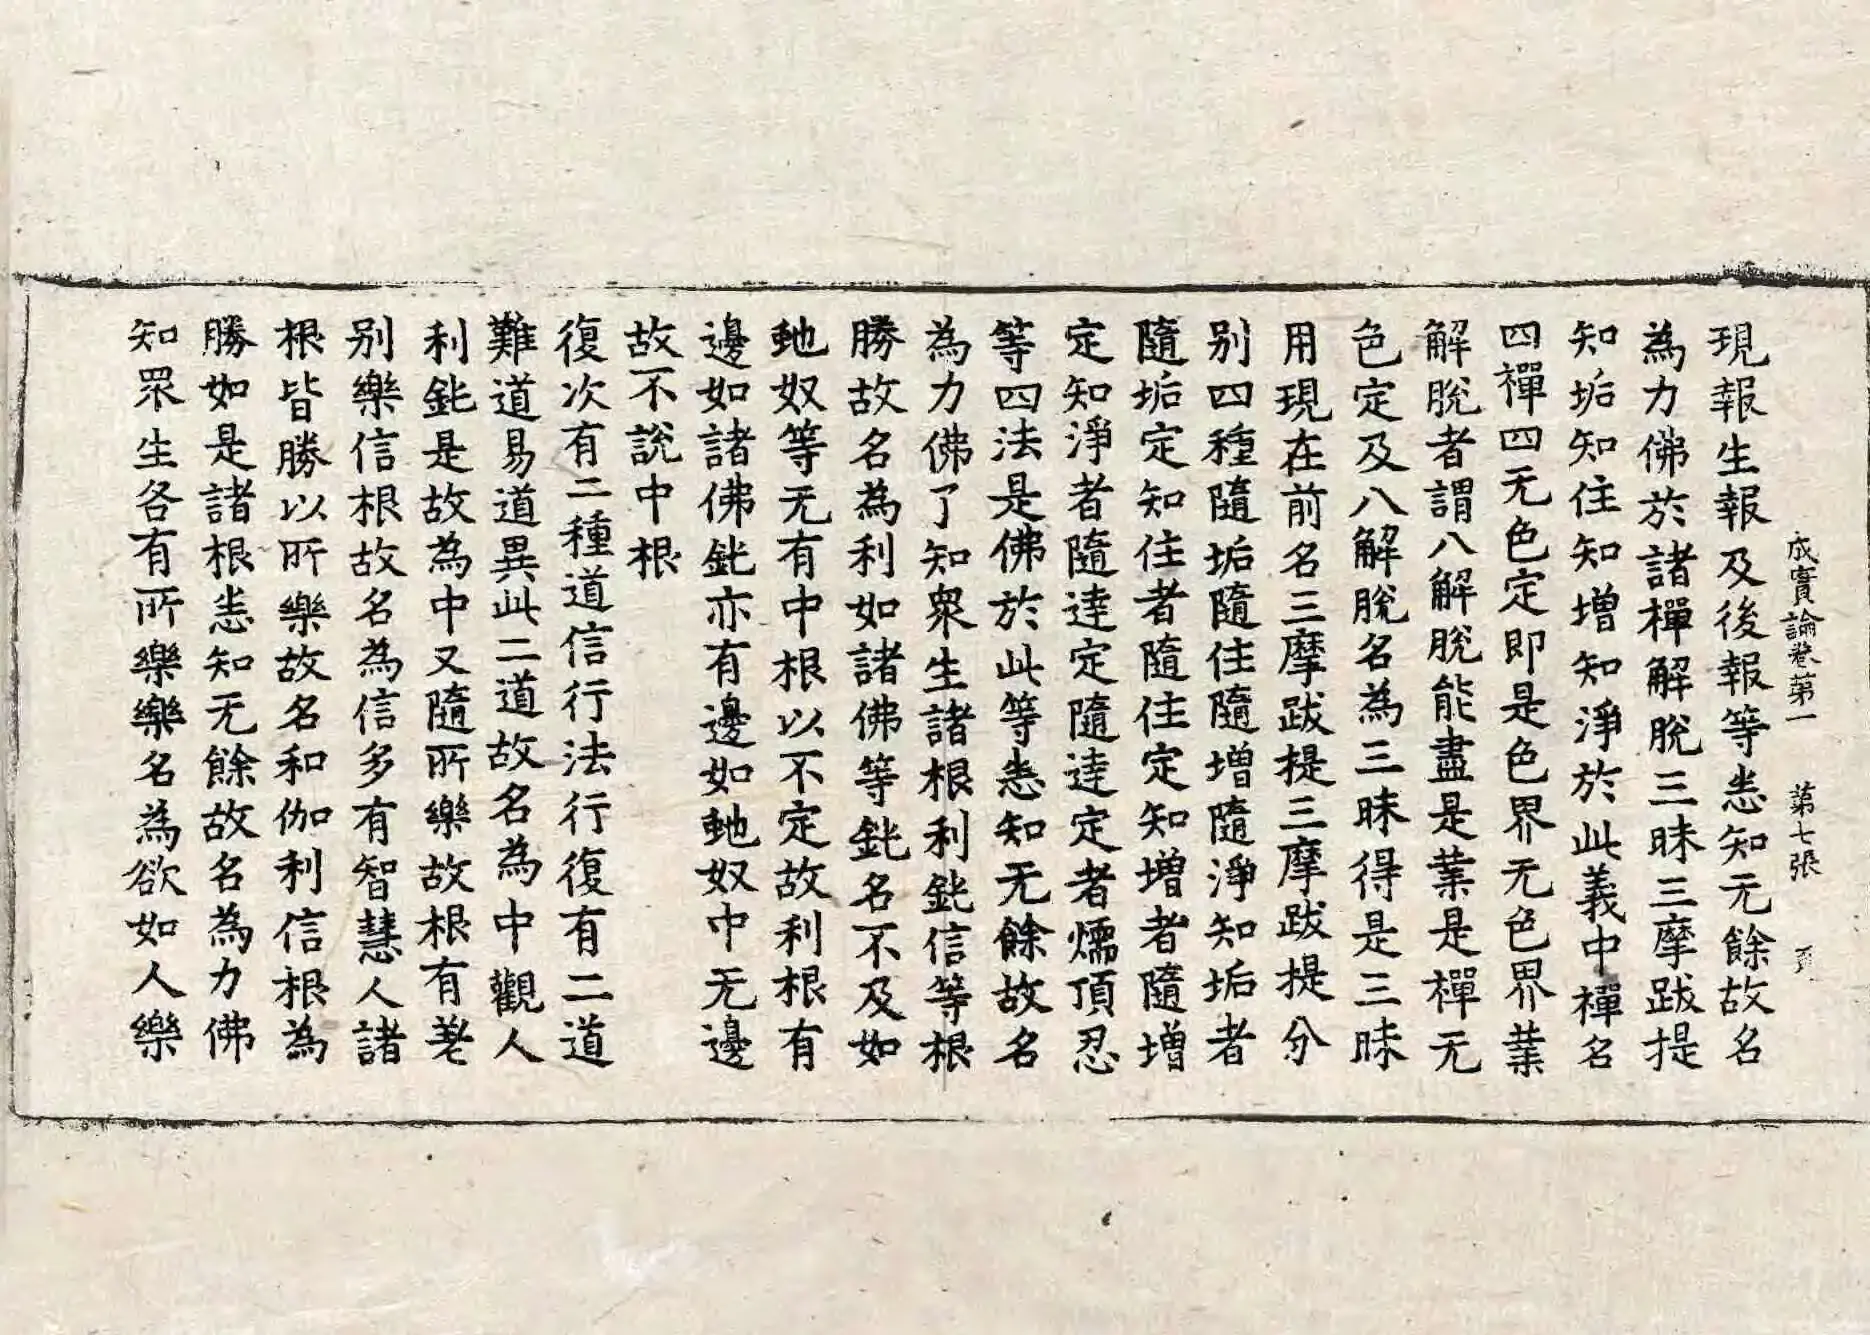 成實論卷第一　第七張
現報生報及後報等恙知无餘故名
為力佛於諸禪解脫三昧三摩跋提
知垢知住知增知淨於此義中禪名
四禪四无色定即是色界无色界業
解脫者謂八解脫能盡是業是禪无
色定及八解脫名為三昧得是三昧
用現在前名三摩跋提三摩跋提分
別四種隨垢隨住隨增隨淨知垢者
隨垢定知住者隨住定知增者隨增
定知淨者隨達定隨達定者燸頂忍
等四法是佛於此等恙知无餘故名
為力佛了知衆生諸根利鈋信等根
勝故名為利如諸佛等鈋名不及如
虵奴等无有中根以不定故利根有
邊如諸佛鈋亦有邊如虵奴中无邊
故不說中根
復次有二種道信行法行復有二道
難道易道異此二道故名為中觀人
利鈋是故為中又隨所樂故根有差
別樂信根故名為信多有智慧人諸
根皆勝以所樂故名和伽利信根為
勝如是諸根恙知无餘故名為力佛
知眾生各有所樂樂名為欲如人樂